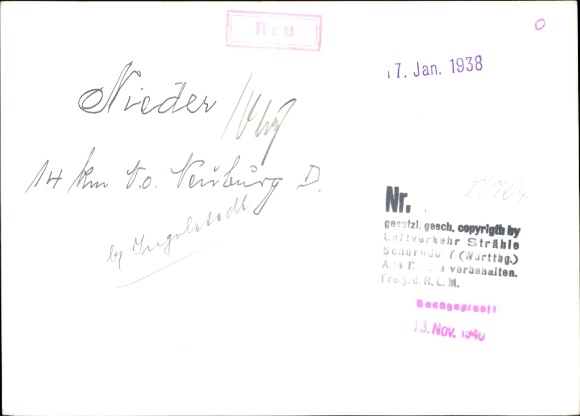 Neu
17. Jan. 1938
Nieder
14 km N.o. Neuburg D.
b/ Ingolstadt
Nr.
gesetzl. gesch. copyrigth by
Luftverkehr Strähle
Schorndorf (Württbg.)
Alle Rechte vorbehalten.
Freig. d. R. L. M.
Nachgeprüft
13. Nov. 1940